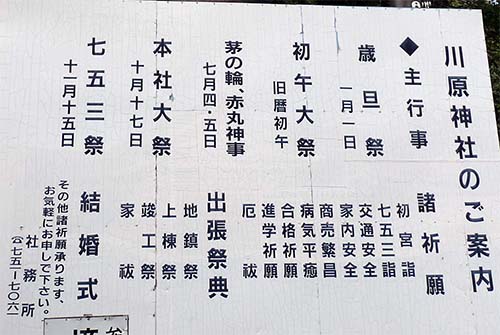 川原神社のご案内
◆主行事
歳旦祭
一月一日
初午大祭
旧暦初午
茅の輪、赤丸神事
七月四・五日
本社大祭
十月十七日
七五三祭
十一月十五日
諸祈願
初宮詣
七五三詣
交通安全
家内安全
商売繁昌
病気平癒
合格祈願
進学祈願
厄祓
出張祭典
地鎮祭
上棟祭
竣工祭
家祓
結婚式
その他諸祈願承ります、
お気軽にお申し下さい。
社務所
(☎七五一-七〇六一)